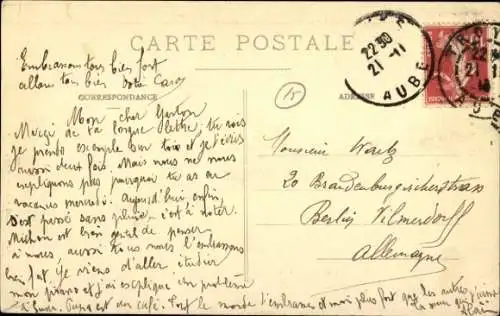 Embrassons tous bien fort
allons tous bien
CARTE POSTALE
CORRESPONDANCE
ADRESSE
15
22 30
21-11
AUBE
22
21
Mon cher
Merci de ta longue lettre, tu vois
je prends exemple sur toi et je t'écris
aussi deux fois. Mais nous ne nous
expliquons pas pourquoi tu as eu
vacances mercredi. Aujourd'hui enfin,
s'est passé sans pluie, c'est à noter.
est bien gentil de penser
à nous, aussi tu nous l'embrasses
bien fort. Je viens d'aller étudier
mon piano et j'ai expliqué un problème
à est au café. Tout le monde t'embrasse et moi plus fort que les autres
Monsieur
20 Brandenburgischerstrass
Berlin Vilmersdorff
Allemagne